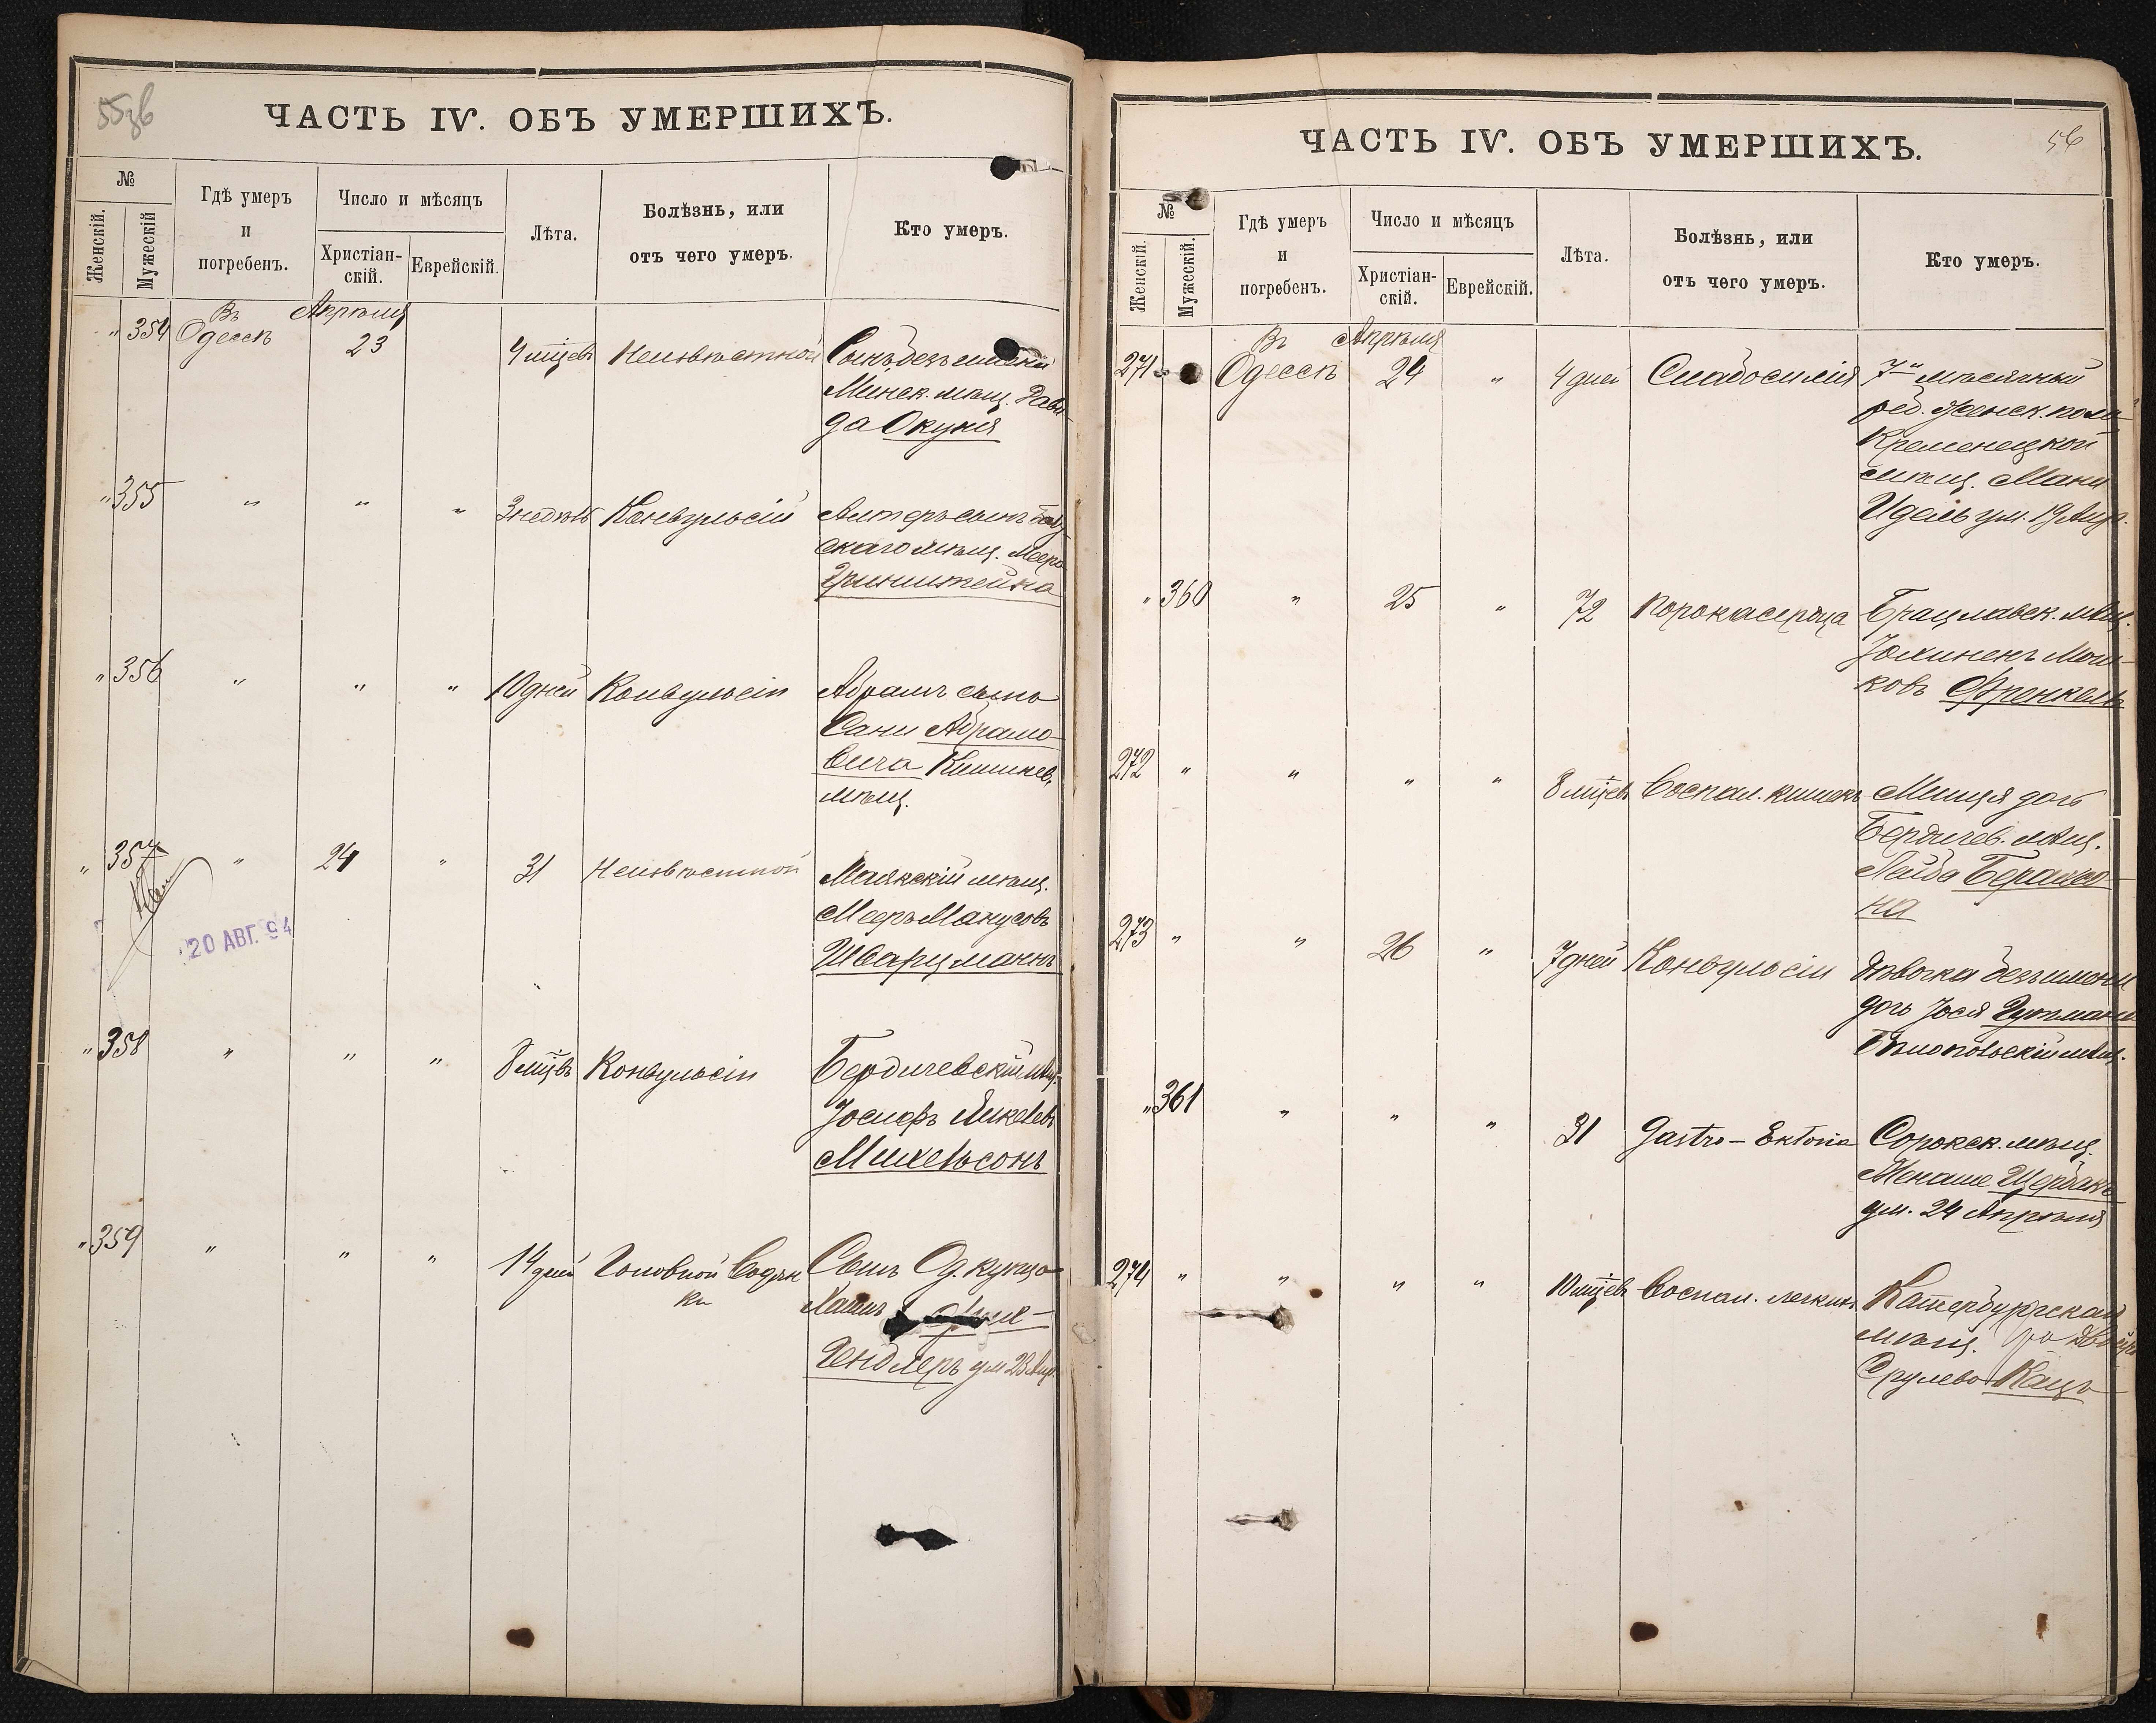 55зв
ЧАСТЬ IV. ОБЪ УМЕРШИХЪ.
№
Женскій.
Мужескій
Гдѣ умеръ
и
погребенъ.
Число и мѣсяцъ
Христіан-
скій.
Еврейскій.
Лѣта.
Болѣзнь, или
отъ чего умеръ.
Кто умеръ.
" 354 Въ Одессѣ Апрѣля 23 4 мѣцевъ Неизвѣстной Сынъ безъ имени
Минск. мѣщ. Дави-
да Окуня
" 355 " " " 3 недѣль Конвульсій Алтеръ сынъ
скаго мѣщ. Меера
Гринштейна
" 356 " " " 10 дней Конвульсіи Абрамъ сынъ
Сани Абрамо-
вича Кишинев.
мѣщ.
" 357 " 24 " 31 Неизвѣстной Маякскій мѣщ.
Мееръ Манусовъ
Шварцманъ
20 АВГ. 94
" 358 " " " 8 мѣцвъ Конвульсіи Бердичевскій мѣщ.
Іосифъ
Михельсонъ
" 359 " " " 14 дней Головной Водян-
ки
Сынъ Од. купца
Хаимъ
Гендлеръ ум 23 Апр.
56
ЧАСТЬ IV. ОБЪ УМЕРШИХЪ.
№
Женскій.
Мужескій.
Гдѣ умеръ
и
погребенъ.
Число и мѣсяцъ
Христіан-
скій.
Еврейскій.
Лѣта.
Болѣзнь, или
отъ чего умеръ.
Кто умеръ.
271 Въ Одессѣ Апрѣля 24 " 4 дней Слабосилія 7и мѣсячный
реб. женск. пола
Кременецкой
мѣщ. Мани
Идель ум. 19 Апр.
" 360 " 25 " 72 Порока сердца Брацлавск. мѣщ.
Мош-
ковъ Френкель
272 " " " " 8 мѣцевъ Воспал. кишекъ Минця дочь
Бердичев. мѣщ.
Лейба
на
273 " " 26 " 7 дней Конвульсіи Дѣвочка безъ имени
дочь Іося Гутмана
мѣщ.
" 361 " " " 31 Gastro-Ektoria Сорокск. мѣщ.
Менаше Щербакъ
ум. 24 Апрѣля
274 " " " " 10 мѣцевъ Воспал. легкихъ Катербургская
мѣщ. Двойра
Срулева Кацъ